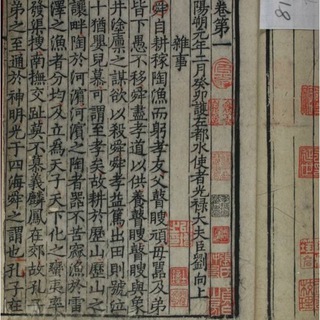 卷第一
陽朔元年二月癸卯護左都水使者光祿大夫臣劉向上
雜事
舜自耕稼陶漁而躬孝友父瞽瞍頑母嚚及弟
皆下愚不移舜盡孝道以供養瞽瞍瞽瞍與象
井塗廩之謀欲以殺舜舜孝益篤出田則號泣
十猶嬰兒慕可謂至孝矣故耕於歷山歷山之
讓畔陶於河濱河濱之陶者器不苦窳漁於雷
澤之漁者分均及立爲天子天下化之蠻夷率
發渠搜南撫交趾莫不慕義麟鳳在郊故孔子
弟之至通於神明光于四海舜之謂也孔子在